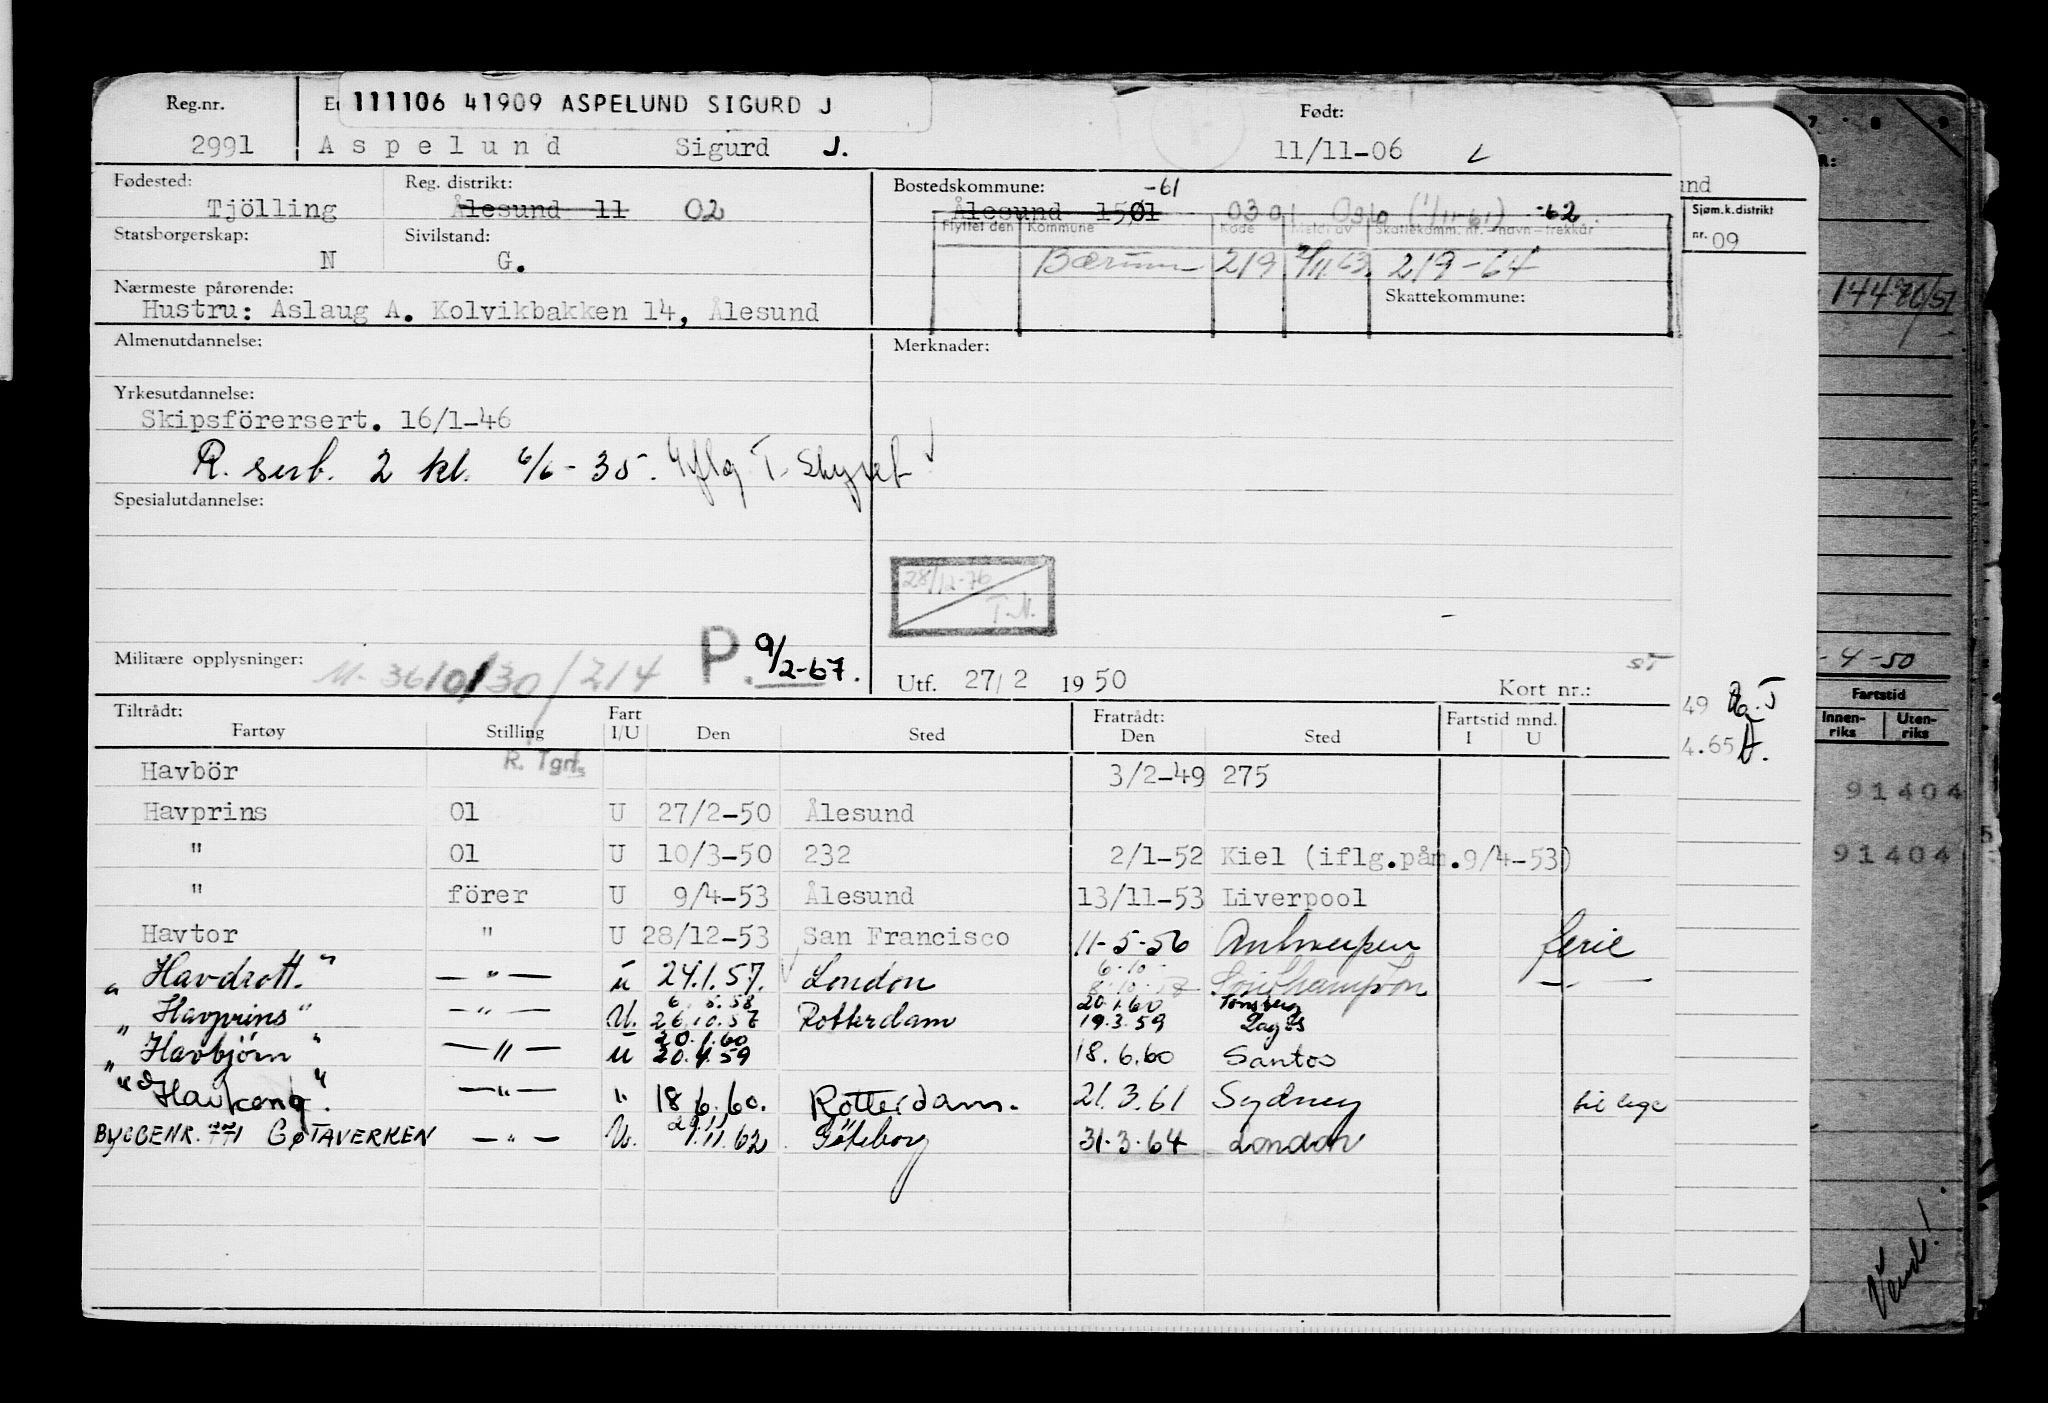 Reg.nr. 111106 41909 ASPELUND SIGURD J Født:
2991 Aspelund Sigurd J. 11/11-06
Fødested: Reg. distrikt: Bostedskommune: -61
Tjölling Ålesund 11 02 Ålesund 1501 030 Oslo (1/11-61) -62.
Flyttet den Kommune Kode Meldt av Skattekomm. nr. – navn – trekkår
Statsborgerskap: Sivilstand:
N G. Bærum 219 /11 63 219-64
Nærmeste pårørende: Skattekommune:
Hustru: Aslaug A. Kolvikbakken 14, Ålesund
Almenutdannelse: Merknader:
Yrkesutdannelse:
Skipsförersert. 16/1-46
R. serb. 2 kl. 6/6-35. Iflg T.
Spesialutdannelse:
28/12-76
T.N.
Militære opplysninger: M. 3610/30/214 P. 9/2-67.
Utf. 27/2 1950 Kort nr.:
Tiltrådt: Fart Fratrådt: Fartstid mnd.
Fartøy Stilling I/U Den Sted Den Sted I U
R. Tgrf.
Havbör 3/2-49 275
Havprins Ol U 27/2-50 Ålesund
" Ol U 10/3-50 232 2/1-52 Kiel (iflg.påm.9/4-53)
" förer U 9/4-53 Ålesund 13/11-53 Liverpool
Havtor " U 28/12-53 San Francisco 11-5-56 Antwerpen ferie
6.10
"Havdrott." — " — u 24.1.57. London 8.10.58 Southampton — " —
6.5.58 20.1.60 Tønsberg
"Havprins" — " — U. 26.10.58 Rotterdam 19.3.59
20.1.60
"Havbjørn" — " — u 20.4.59 18.6.60 Santos
"Havkong". — " — " 18.6.60. Rotterdam. 21.3.61 Sydney til lege
29.11
BYGGENR. 771 GØTAVERKEN — " — U. 1.11.62 Göteborg 31.3.64 London
und
Sjøm.k.distrikt
nr. 09
49
4.65
7 8 9
R:
14486/51
-4-50
Fartstid
Innen-riks Uten-riks
91404
91404
5
Vend!